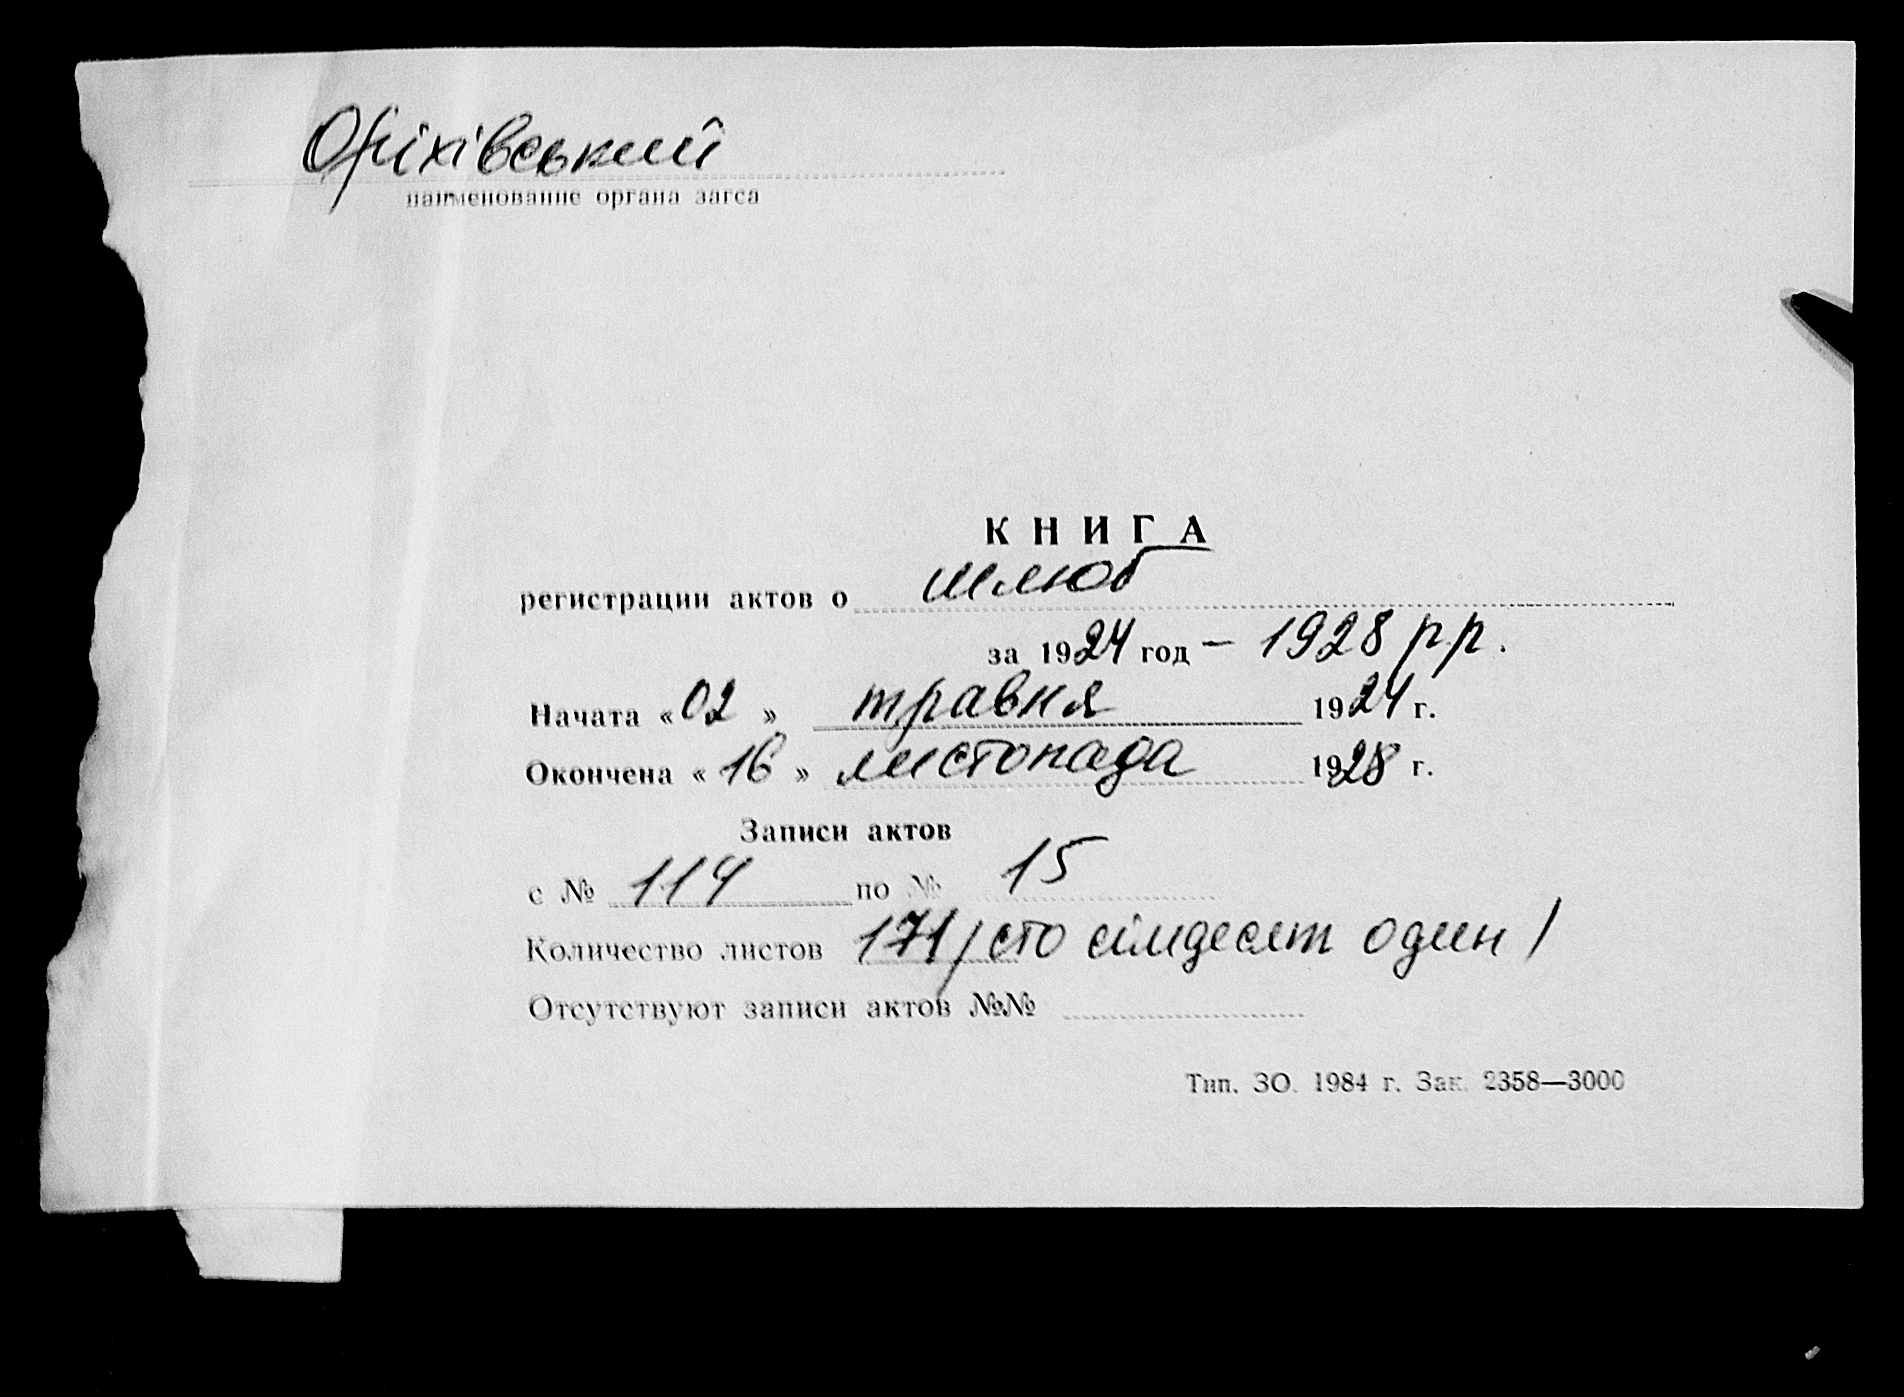 Оріхівський
наименование органа загса
КНИГА
регистрации актов о шлюб
за 1924 год - 1928 р.р.
Начата «02» травня 1924 г.
Окончена «16» листопада 1928 г.
Записи актов
с № 114 по № 15
Количество листов 171 /сто сімдесят один/
Отсутствуют записи актов №№
Тип. ЗО. 1984 г. Зак. 2358—3000